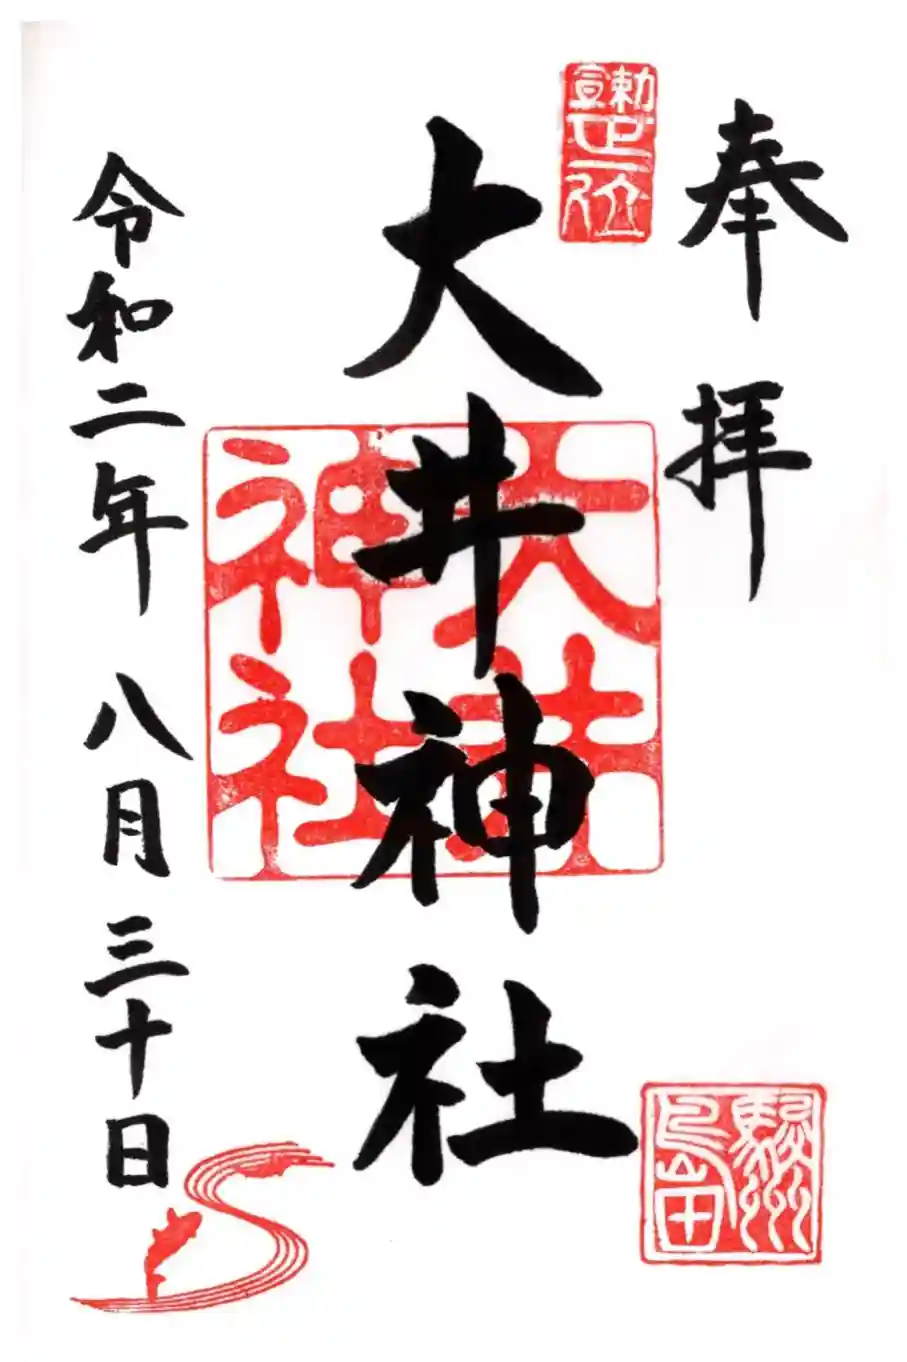 奉拝
勅宣
正一位
大井神社
大井神社
駿州
島田
令和二年八月三十日